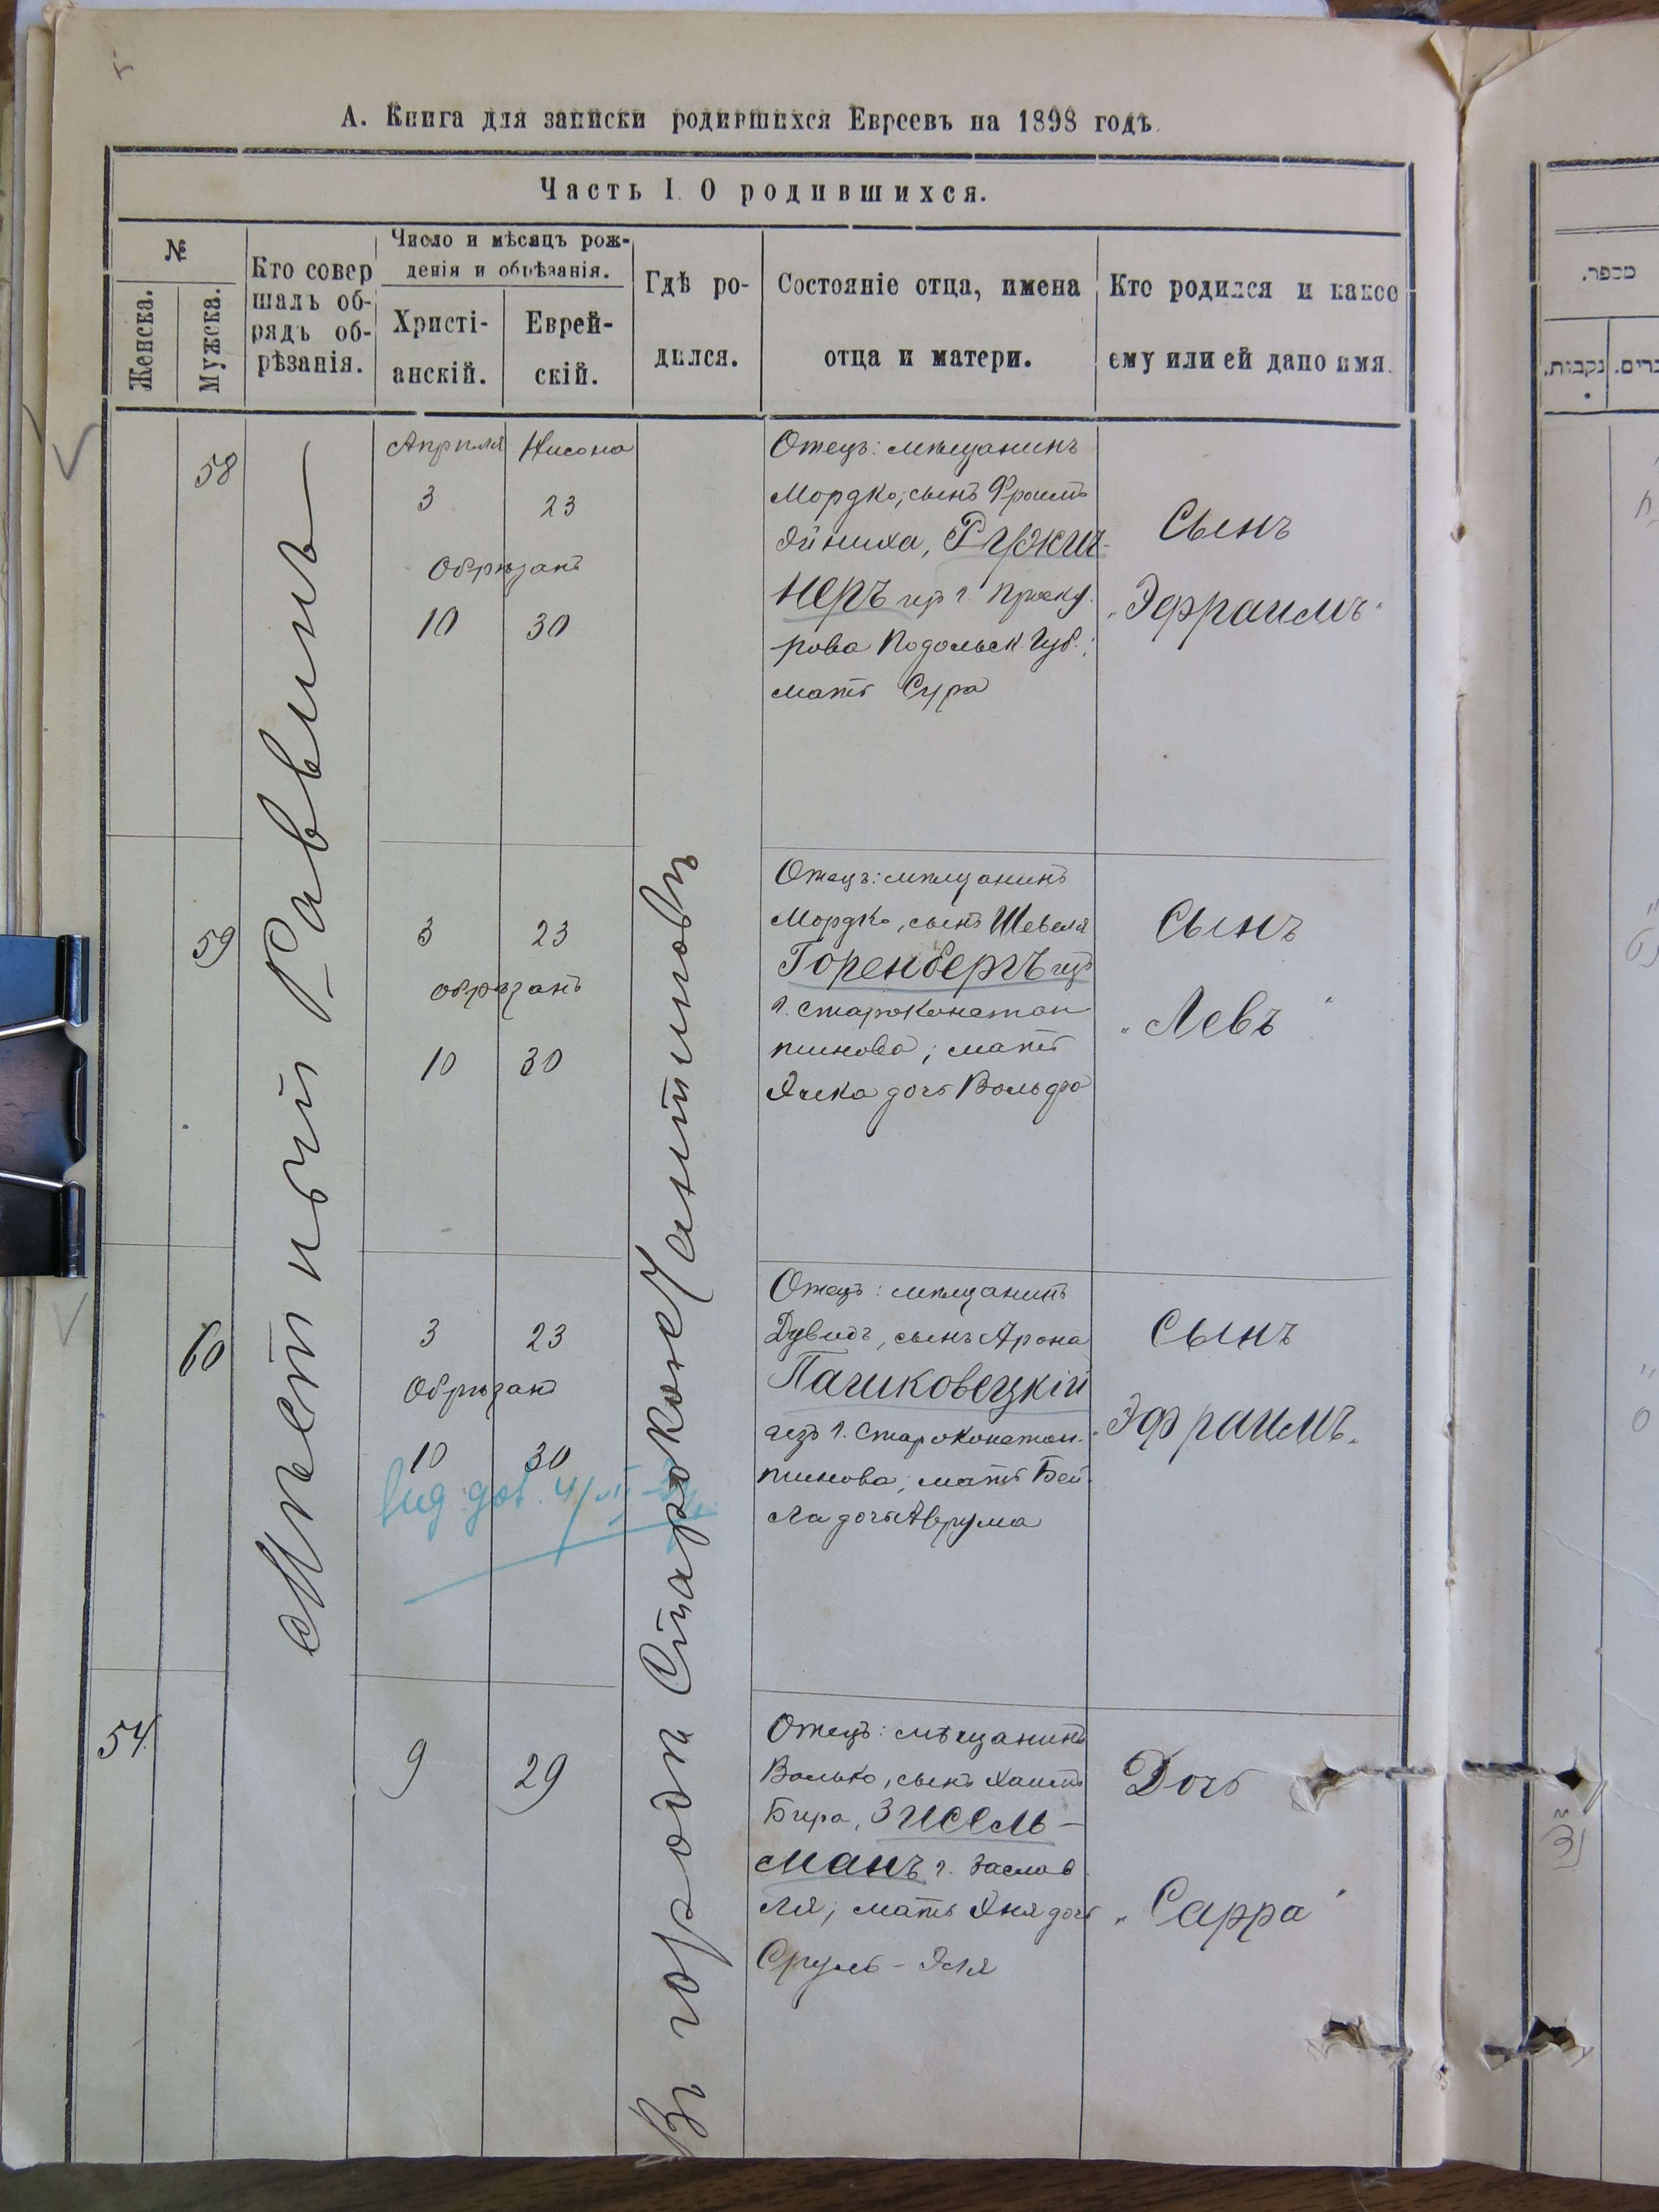 А. Книга для записки родившихся Евреевъ на 1898 годъ.
Часть I. О родившихся.
№
Женска.
Мужска.
Кто совер
шалъ об-
рядъ об-
рѣзанія.
Число и мѣсяцъ рож-
денія и обрѣзанія.
Христі-
анскій.
Еврей-
скій.
Гдѣ ро-
дился.
Состояніе отца, имена
отца и матери.
Кто родился и какое
ему или ей дано имя.
Мѣстный Раввинъ
Въ городѣ Староконстантиновѣ
58
Апрѣля Нисона
3 23
Обрѣзанъ
10 30
Отецъ: мѣщанинъ
Мордко, сынъ Фроимъ
Ойниха, Ружич-
неръ изъ г. Проску
рова Подольск. Губ.;
мать Сура
Сынъ
„Эфраимъ“
59
3 23
обрѣзанъ
10 30
Отецъ: мѣщанинъ
Мордко, сынъ Шевеля
Горенбергъ изъ
г. Староконстан
тинова; мать
дочь Вольфа
Сынъ
„Левъ“
60
3 23
Обрѣзанъ
10 30
Отецъ: мѣщанинъ
Дувидъ, сынъ Арона
Пашковецкій
изъ г. Староконстан-
тинова; мать Бей
ла дочь Аврума
Сынъ
„Эфраимъ“
54
9 29
Отецъ: мѣщанинъ
Волько, сынъ Хаимъ
Бера, Зисель-
манъ г. Заслав
ля; мать Хня дочь
Сруль-Эля
Дочь
„Сарра“
מספר.
נקבות.